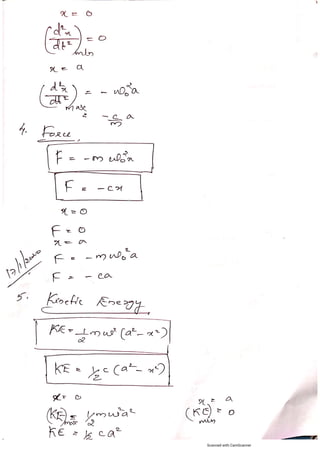 x = 0
(d²x/dt²)min = 0
x = a
(d²x/dt²)max = - ω₀²a
= - c/m a
4. Force
F = - m ω₀²x
F = - cx
x = 0
F = 0
x = a
F = - m ω₀² a
F = - ca
5. Kinetic Energy
KE = 1/2 m ω² (a² - x²)
KE = 1/2 c (a² - x²)
x = 0 x = a
(KE)max = 1/2 m ω² a² (KE)min = 0
KE = 1/2 c a²
Scanned with CamScanner